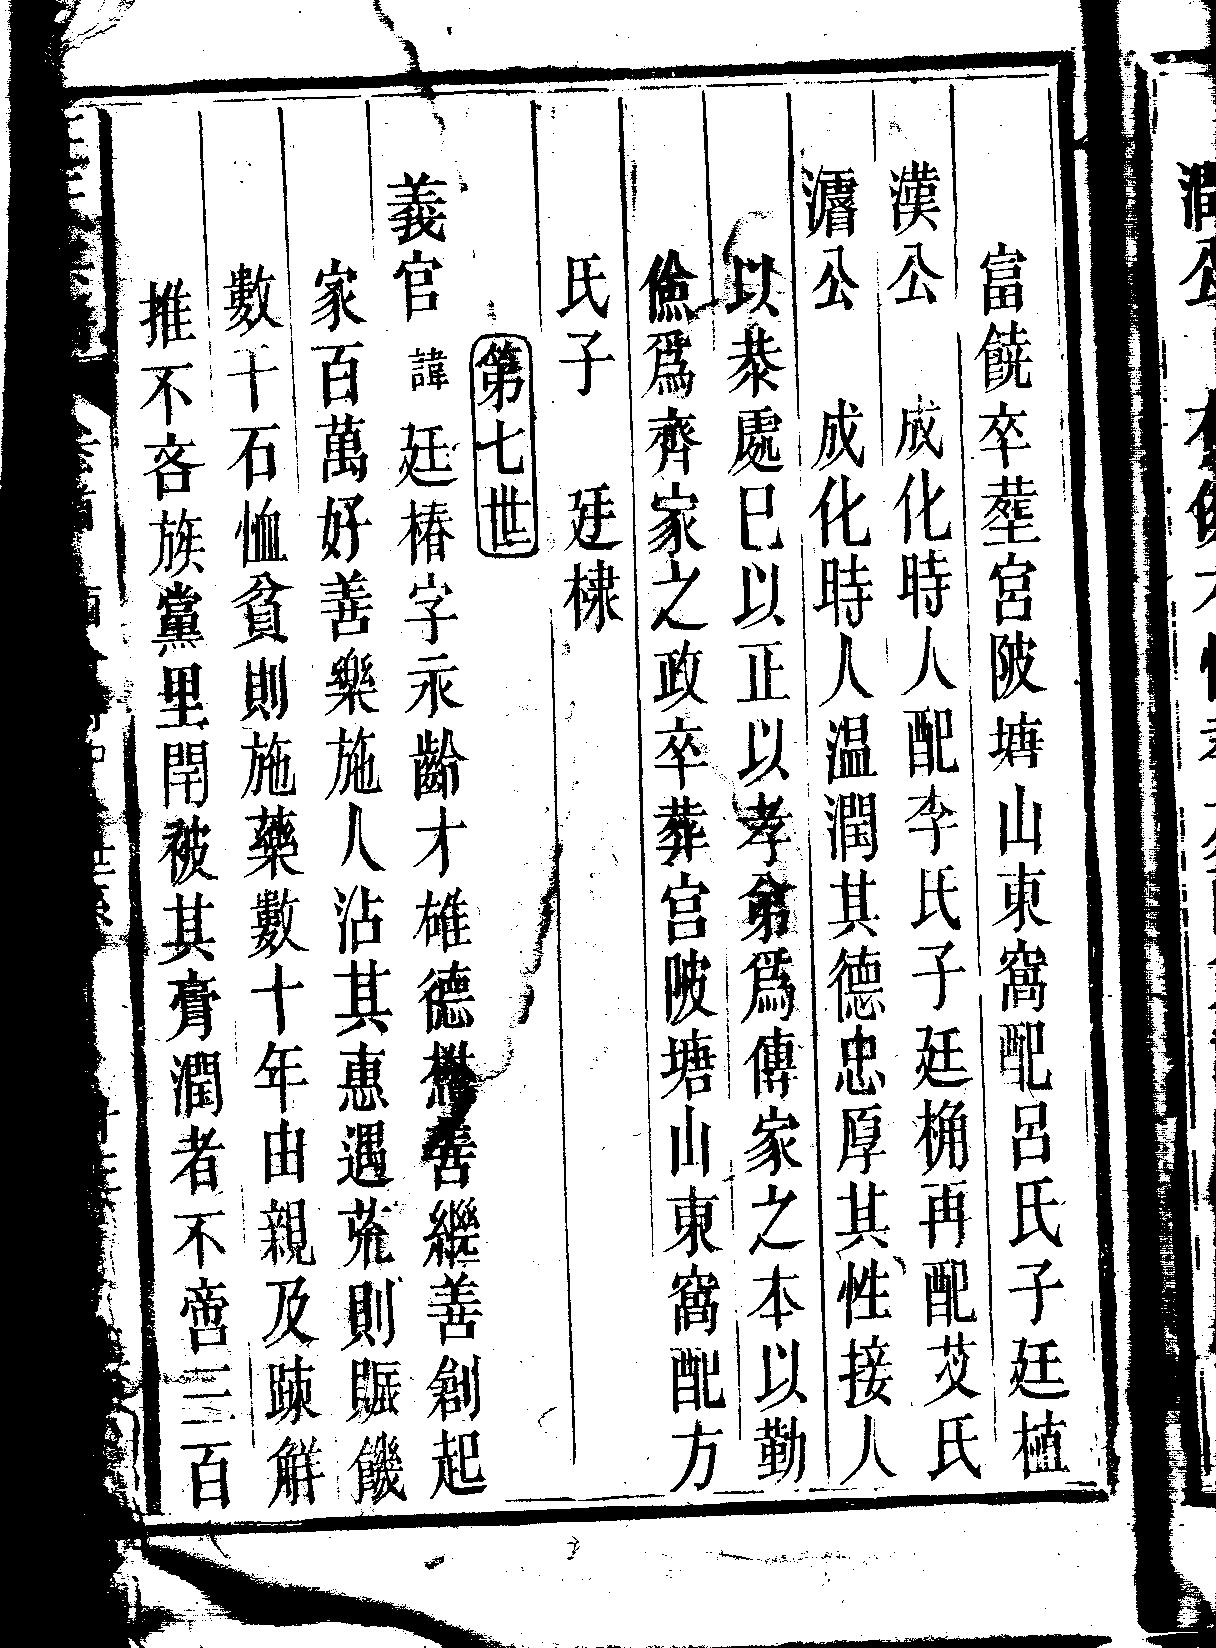 富饒卒塟宮陂塘山東窩配呂氏子廷植
漢公　成化時人配李氏子廷桷再配芠氏
濬公　成化時人温潤其德忠厚其性接人
以恭處巳以正以孝弟爲傳家之本以勤
儉爲齊家之政卒葬宫陂塘山東窩配方
氏子　廷棣
第七世
義官諱廷椿字永齡才雄德懋善繼善創起
家百萬好善樂施人沾其惠遇荒則賑饑
數千石恤貧則施藥數十年由親及踈觧
推不吝族黨里閈被其膏潤者不啻三百